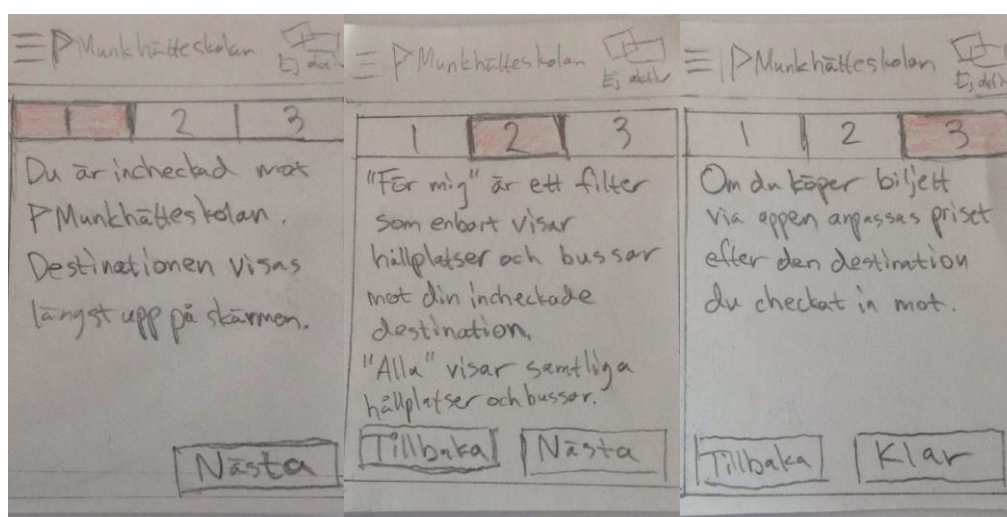 Munkhätteskolan
Ej aktiv
1 2 3
Du är incheckad mot
Munkhätteskolan.
Destinationen visas
längst upp på skärmen.
Nästa
Munkhätteskolan
Ej aktiv
1 2 3
"För mig" är ett filter
som enbart visar
hållplatser och bussar
mot din incheckade
destination.
"Alla" visar samtliga
hållplatser och bussar.
Tillbaka Nästa
Munkhätteskolan
Ej aktiv
1 2 3
Om du köper biljett
via appen anpassas priset
efter den destination
du checkat in mot.
Tillbaka Klar